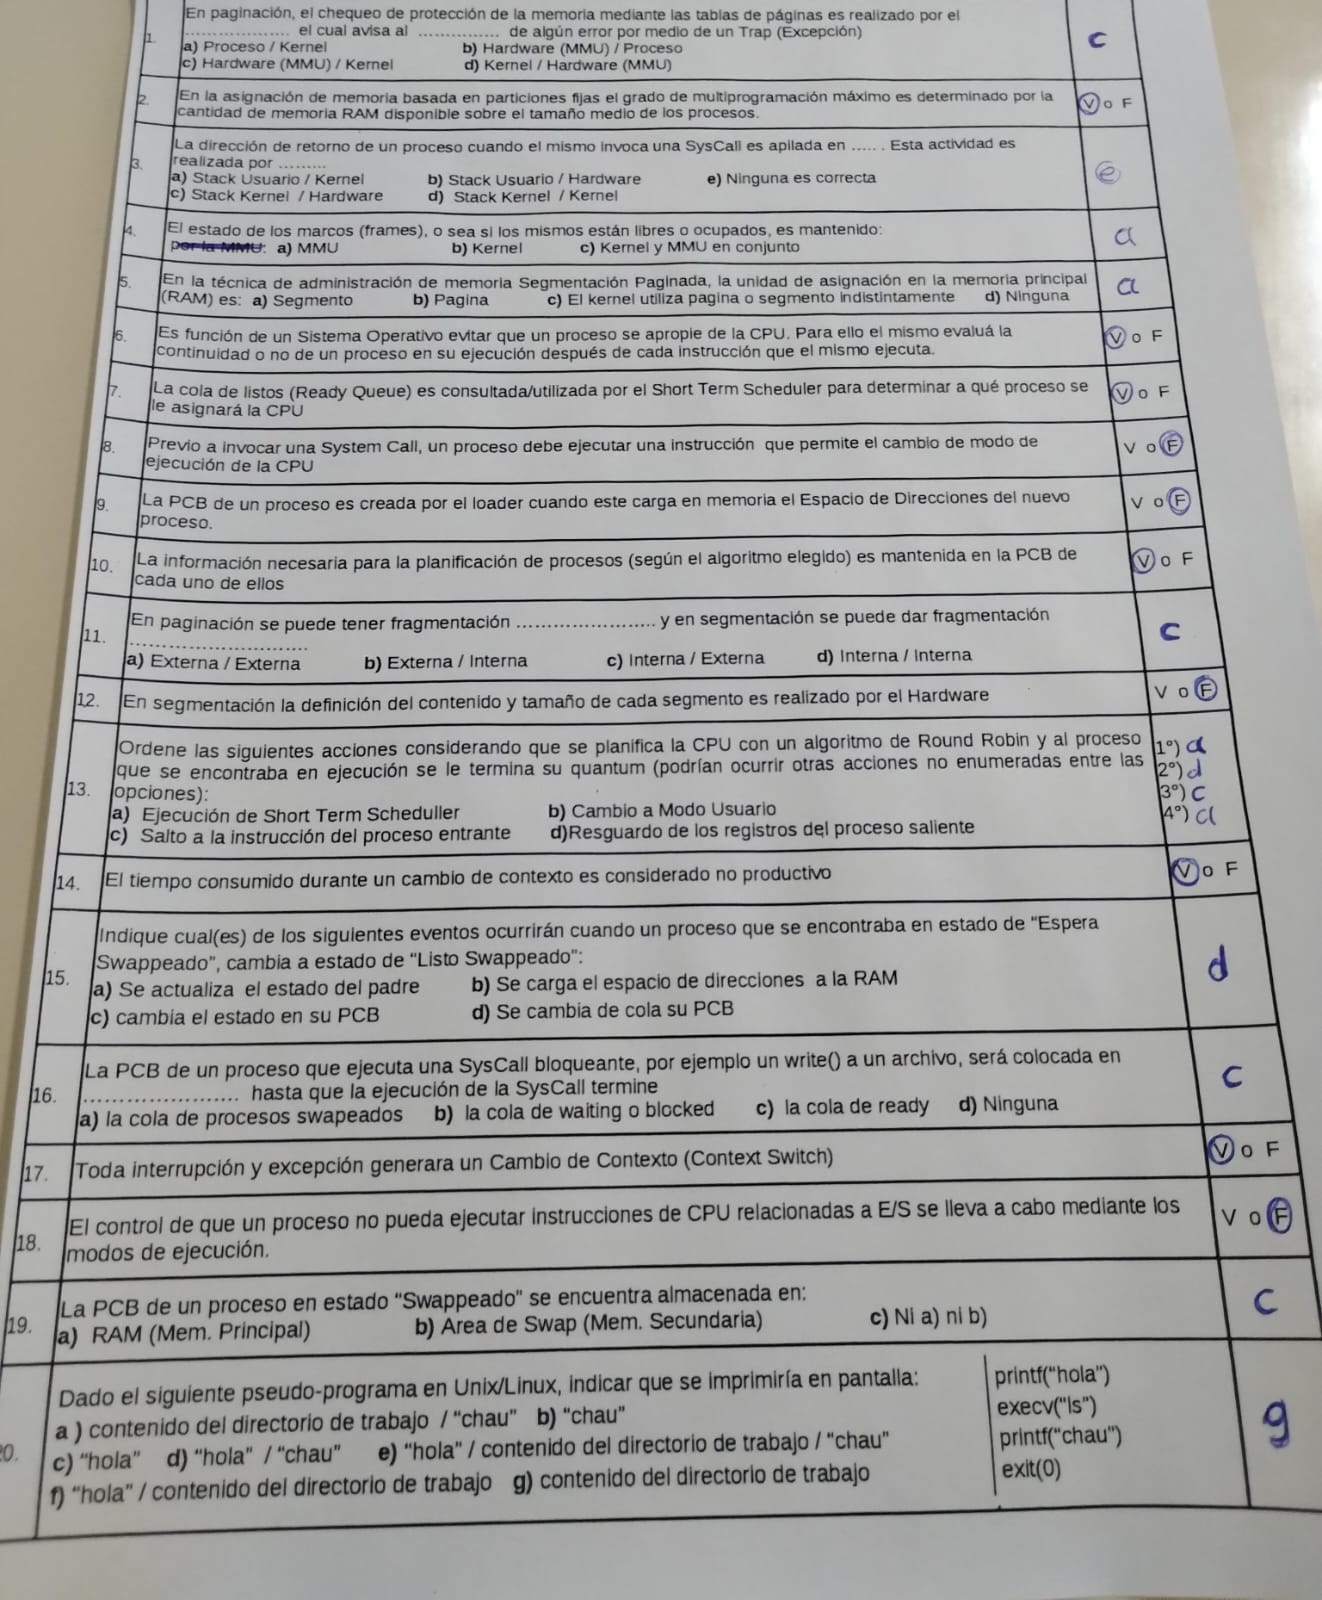 En paginación, el chequeo de protección de la memoria mediante las tablas de páginas es realizado por el
1. .................... el cual avisa al ............... de algún error por medio de un Trap (Excepción)
a) Proceso / Kernel b) Hardware (MMU) / Proceso C
c) Hardware (MMU) / Kernel d) Kernel / Hardware (MMU)
2. En la asignación de memoria basada en particiones fijas el grado de multiprogramación máximo es determinado por la V o F
cantidad de memoria RAM disponible sobre el tamaño medio de los procesos.
La dirección de retorno de un proceso cuando el mismo invoca una SysCall es apilada en ..... . Esta actividad es
3. realizada por .........
a) Stack Usuario / Kernel b) Stack Usuario / Hardware e) Ninguna es correcta e
c) Stack Kernel / Hardware d) Stack Kernel / Kernel
4. El estado de los marcos (frames), o sea si los mismos están libres o ocupados, es mantenido: a
por la MMU: a) MMU b) Kernel c) Kernel y MMU en conjunto
5. En la técnica de administración de memoria Segmentación Paginada, la unidad de asignación en la memoria principal a
(RAM) es: a) Segmento b) Pagina c) El kernel utiliza pagina o segmento indistintamente d) Ninguna
6. Es función de un Sistema Operativo evitar que un proceso se apropie de la CPU. Para ello el mismo evaluá la V o F
continuidad o no de un proceso en su ejecución después de cada instrucción que el mismo ejecuta.
7. La cola de listos (Ready Queue) es consultada/utilizada por el Short Term Scheduler para determinar a qué proceso se V o F
le asignará la CPU
8. Previo a invocar una System Call, un proceso debe ejecutar una instrucción que permite el cambio de modo de V o F
ejecución de la CPU
9. La PCB de un proceso es creada por el loader cuando este carga en memoria el Espacio de Direcciones del nuevo V o F
proceso.
10. La información necesaria para la planificación de procesos (según el algoritmo elegido) es mantenida en la PCB de V o F
cada uno de ellos
En paginación se puede tener fragmentación ....................... y en segmentación se puede dar fragmentación
11. ............................. C
a) Externa / Externa b) Externa / Interna c) Interna / Externa d) Interna / Interna
12. En segmentación la definición del contenido y tamaño de cada segmento es realizado por el Hardware V o F
Ordene las siguientes acciones considerando que se planifica la CPU con un algoritmo de Round Robin y al proceso 1°) a
que se encontraba en ejecución se le termina su quantum (podrían ocurrir otras acciones no enumeradas entre las 2°) d
13. opciones): 3°) c
a) Ejecución de Short Term Scheduller b) Cambio a Modo Usuario 4°) a
c) Salto a la instrucción del proceso entrante d)Resguardo de los registros del proceso saliente
14. El tiempo consumido durante un cambio de contexto es considerado no productivo V o F
Indique cual(es) de los siguientes eventos ocurrirán cuando un proceso que se encontraba en estado de “Espera
Swappeado”, cambia a estado de “Listo Swappeado”:
15. a) Se actualiza el estado del padre b) Se carga el espacio de direcciones a la RAM d
c) cambia el estado en su PCB d) Se cambia de cola su PCB
La PCB de un proceso que ejecuta una SysCall bloqueante, por ejemplo un write() a un archivo, será colocada en
16. ...................... hasta que la ejecución de la SysCall termine C
a) la cola de procesos swapeados b) la cola de waiting o blocked c) la cola de ready d) Ninguna
17. Toda interrupción y excepción generara un Cambio de Contexto (Context Switch) V o F
18. El control de que un proceso no pueda ejecutar instrucciones de CPU relacionadas a E/S se lleva a cabo mediante los V o F
modos de ejecución.
19. La PCB de un proceso en estado “Swappeado” se encuentra almacenada en: C
a) RAM (Mem. Principal) b) Area de Swap (Mem. Secundaria) c) Ni a) ni b)
Dado el siguiente pseudo-programa en Unix/Linux, indicar que se imprimiría en pantalla: printf(“hola”)
a ) contenido del directorio de trabajo / “chau” b) “chau” execv(“ls”)
0. c) “hola” d) “hola” / “chau” e) “hola” / contenido del directorio de trabajo / “chau” printf(“chau”) g
f) “hola” / contenido del directorio de trabajo g) contenido del directorio de trabajo exit(0)